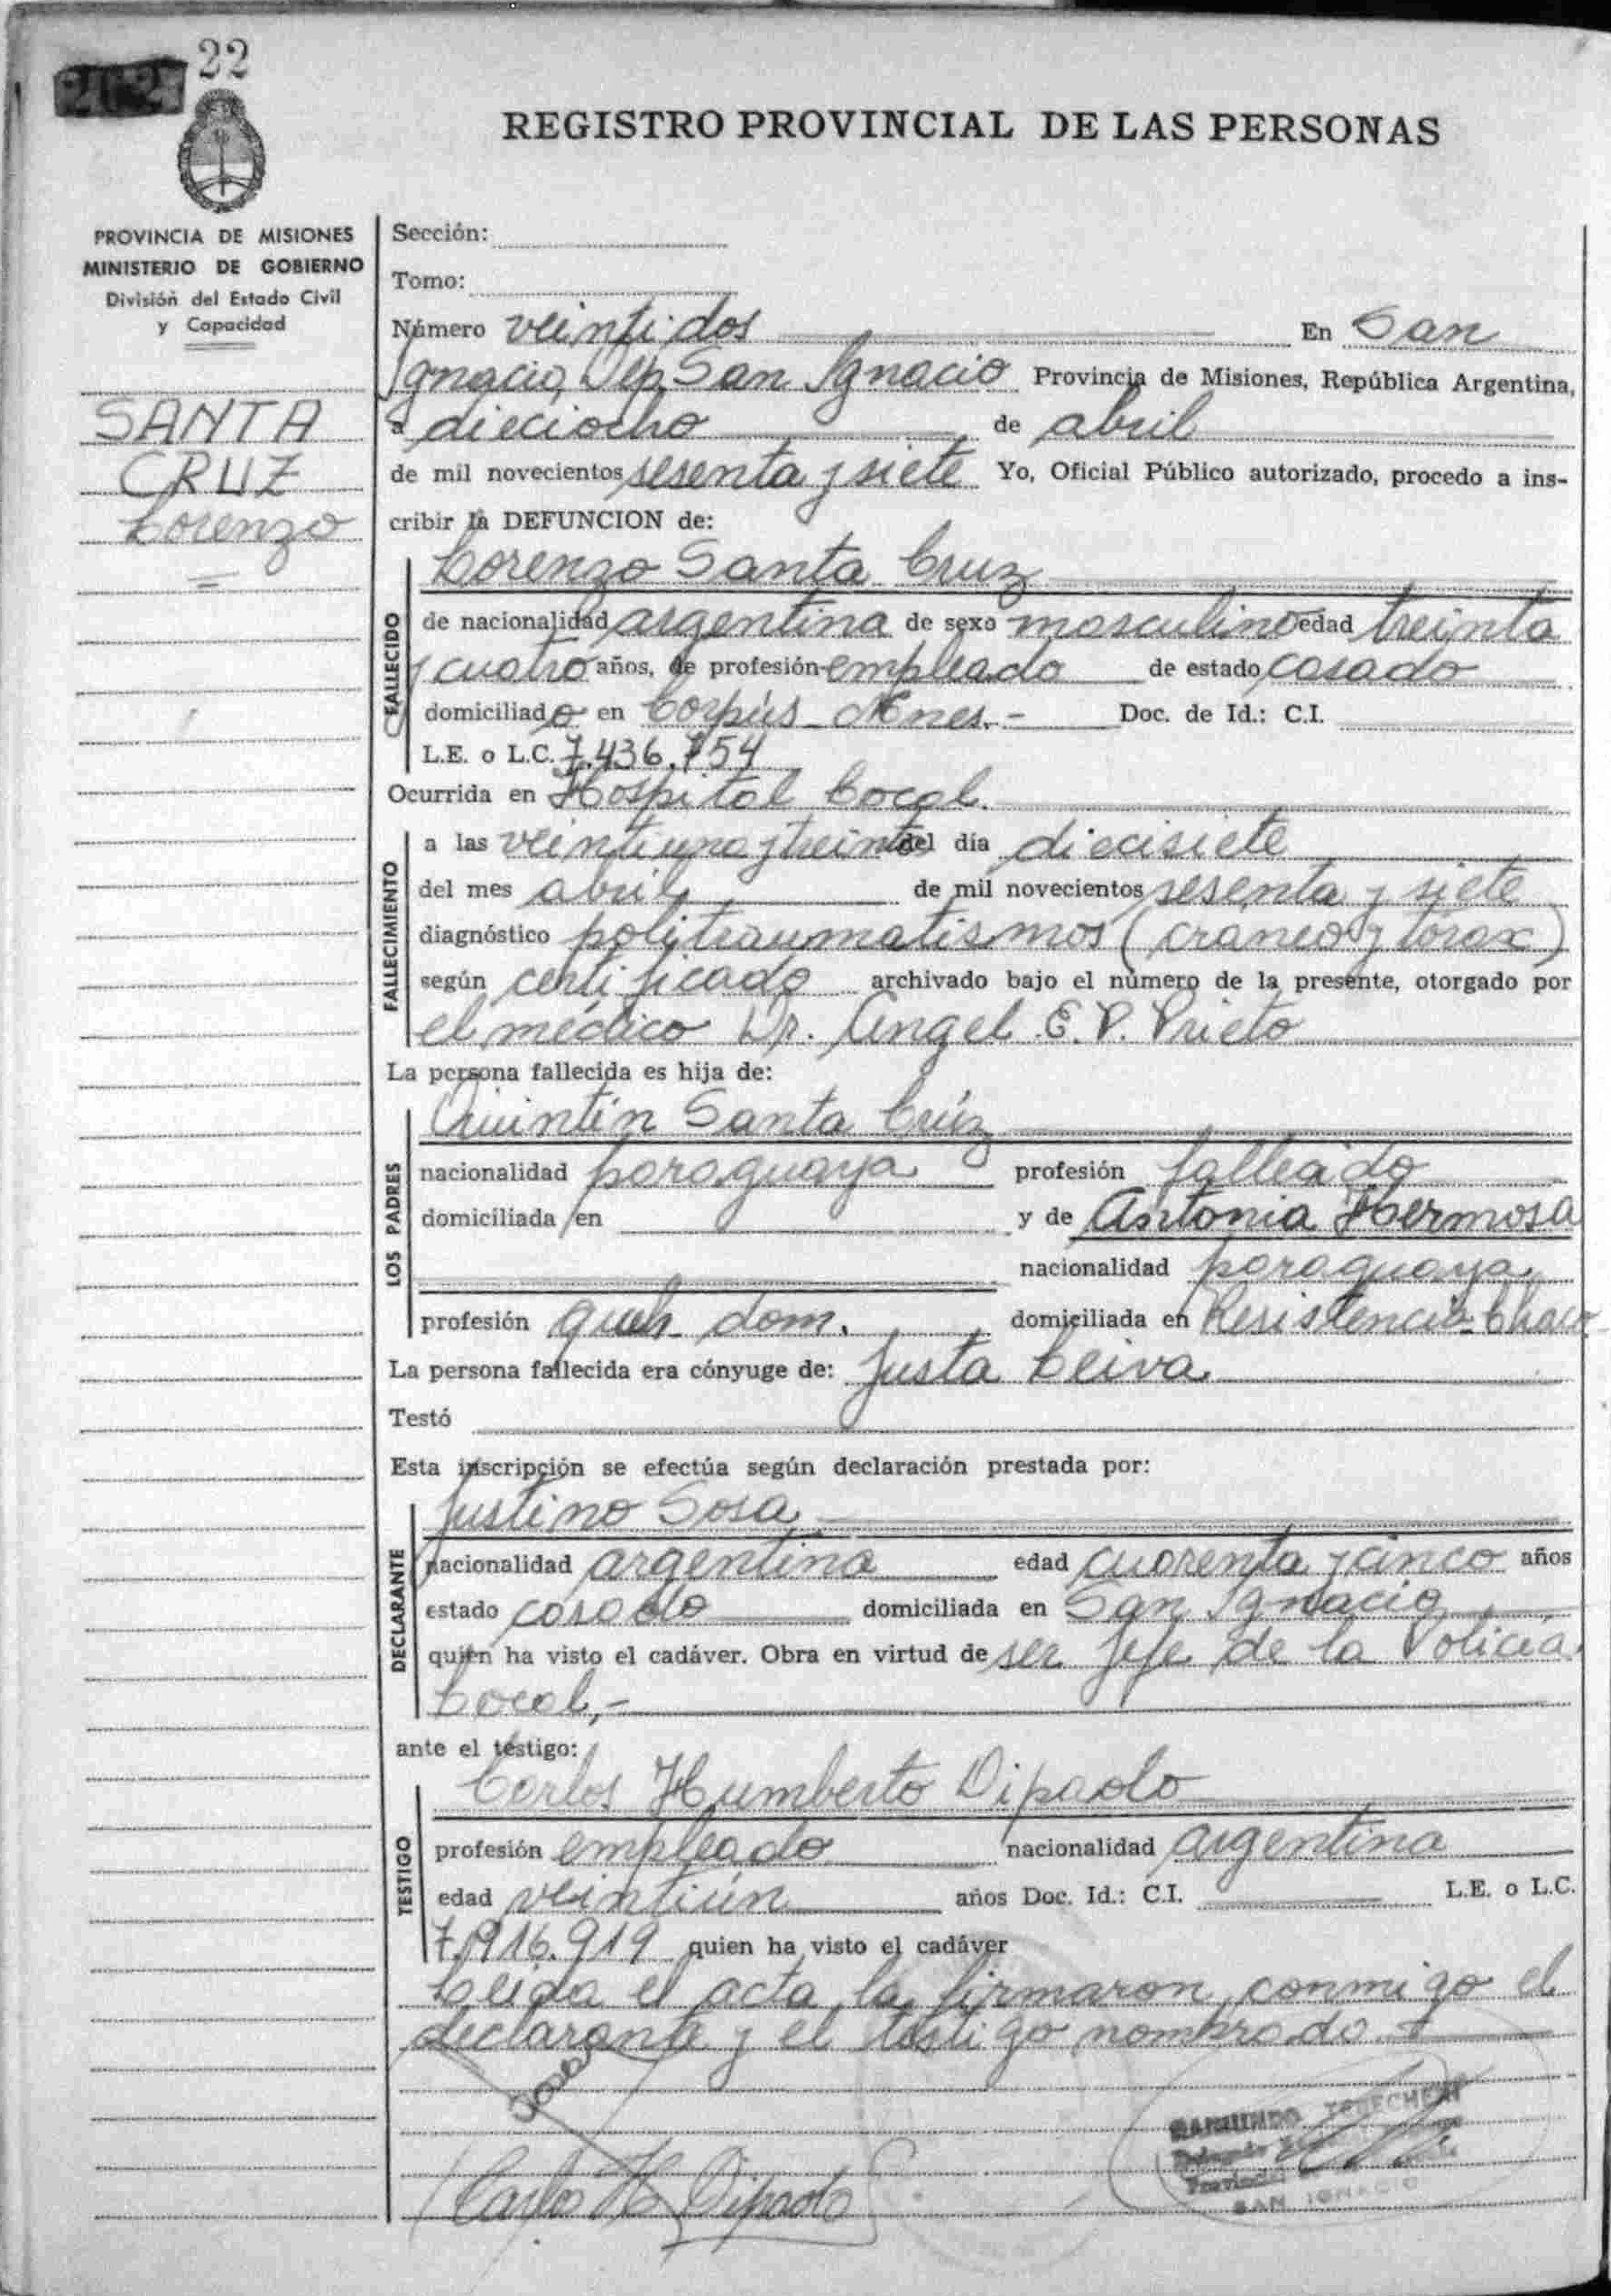 22
REGISTRO PROVINCIAL DE LAS PERSONAS
PROVINCIA DE MISIONES
MINISTERIO DE GOBIERNO
División del Estado Civil
y Capacidad
SANTA
CRUZ
Lorenzo
Sección:
Tomo:
Número veintidos En San
Ignacio, Dep. San Ignacio Provincia de Misiones, República Argentina,
a dieciocho de abril
de mil novecientos sesenta y siete Yo, Oficial Público autorizado, procedo a ins-
cribir la DEFUNCION de:
FALLECIDO
Lorenzo Santa Cruz
de nacionalidad argentina de sexo masculino edad treinta
y cuatro años, de profesión empleado de estado casado
domiciliado en Corpus - Mnes. - Doc. de Id.: C.I.
L.E. o L.C. 7.436.754
Ocurrida en Hospital Local.
FALLECIMIENTO
a las veintiuna y treinta del día diecisiete
del mes abril de mil novecientos sesenta y siete
diagnóstico politraumatismos (craneo y tórax)
según certificado archivado bajo el número de la presente, otorgado por
el médico Dr. Angel E. P. Prieto
La persona fallecida es hija de:
LOS PADRES
Quintín Santa Crúz
nacionalidad paraguaya profesión fallecido
domiciliada en y de Antonia Hermosa
nacionalidad paraguaya
profesión queh. dom. domiciliada en Resistencia - Chaco
La persona fallecida era cónyuge de: Justa Leiva
Testó
Esta inscripción se efectúa según declaración prestada por:
DECLARANTE
Justino Sosa
nacionalidad argentina edad cuarenta y cinco años
estado casado domiciliada en San Ignacio
quien ha visto el cadáver. Obra en virtud de ser Jefe de la Policía
Local,-
ante el testigo:
TESTIGO
Carlos Humberto Dipaolo
profesión empleado nacionalidad argentina
edad veintiún años Doc. Id.: C.I. L.E. o L.C.
7.916.919 quien ha visto el cadáver
Leida el acta, la firmaron conmigo el
declarante y el testigo nombrado
Sosa
Carlos H. Dipaolo
RAIMUNDO
SAN IGNACIO